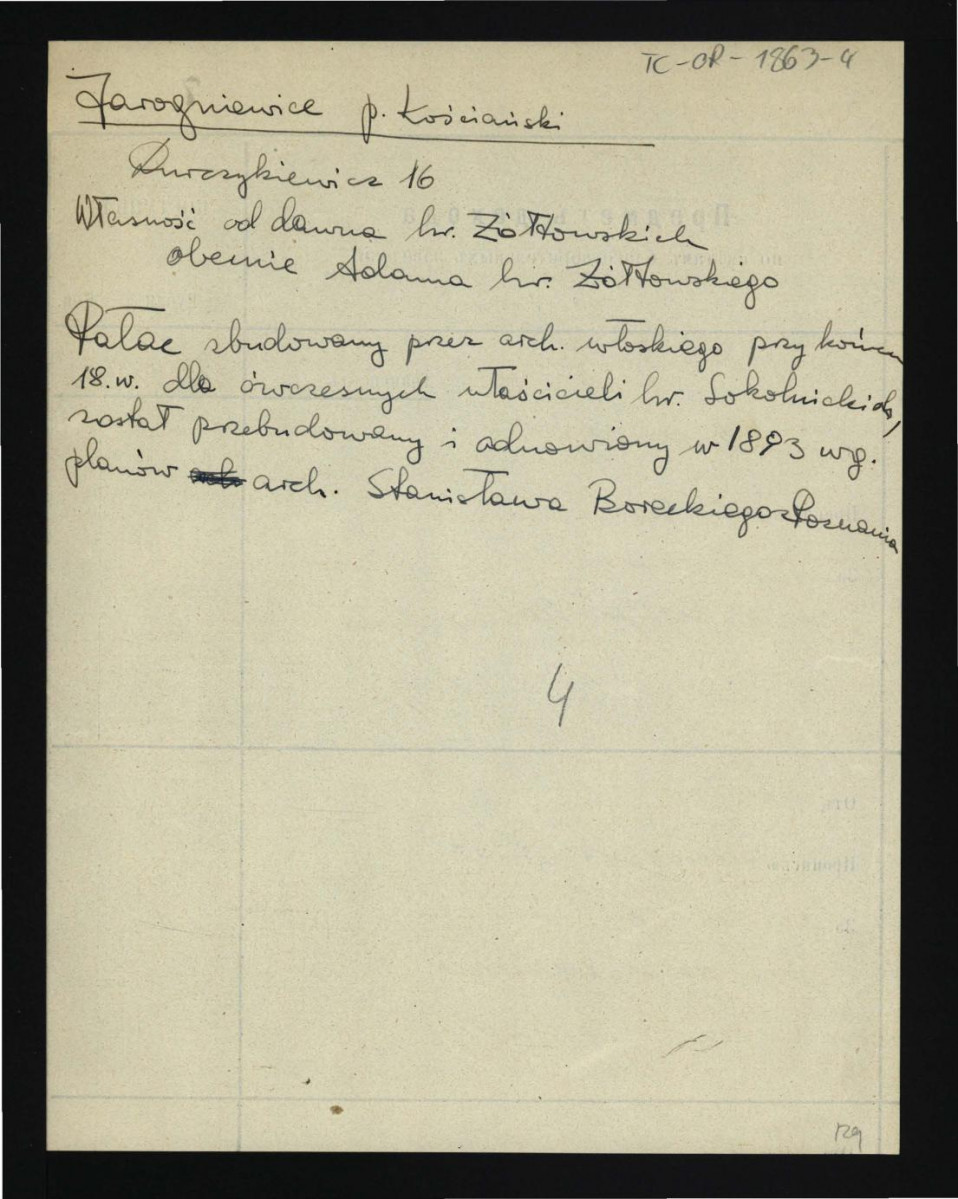 TC-OR-1863-4
Jarogniewice p. Kościański
Durczykiewicz 16
Własność od dawna hr. Żółtowskich
obecnie Adama hr. Żółtowskiego
Pałac zbudowany przez arch. włoskiego przy końcu
18. w. dla ówczesnych właścicieli hr. Sokolnickich,
został przebudowany i odnowiony w 1893 wg.
planów arch. Stanisława Boreckiego z Poznania
4
129